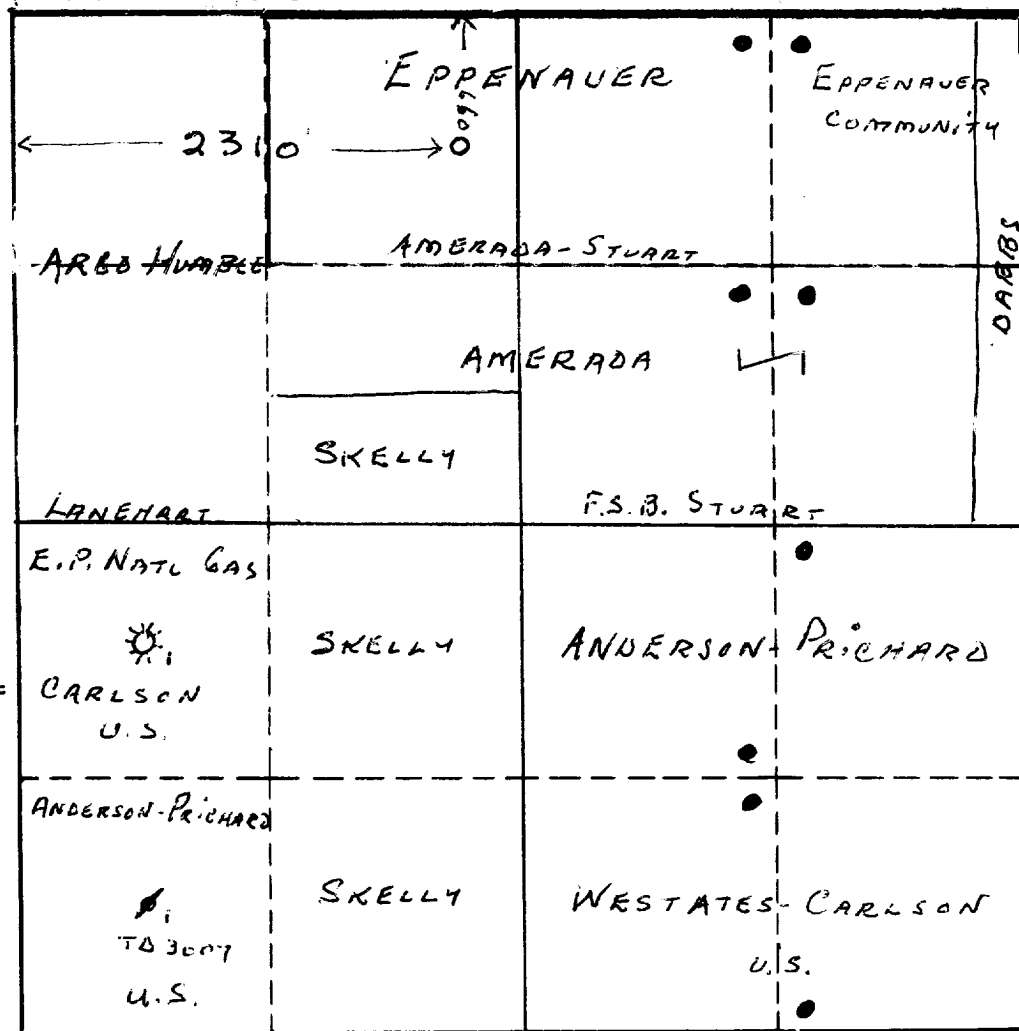 EPPENAUER
EPPENAUER
COMMUNITY
660
2310
DABBS
ARGO HUMBLE
AMERADA-STUART
AMERADA
SKELLY
LANEHART
F.S.B. STUART
E.P. NATL GAS
1
CARLSON
U.S.
SKELLY
ANDERSON-PRICHARD
ANDERSON-PRICHARD
1
TD 3007
U.S.
SKELLY
WESTATES-CARLSON
U.S.